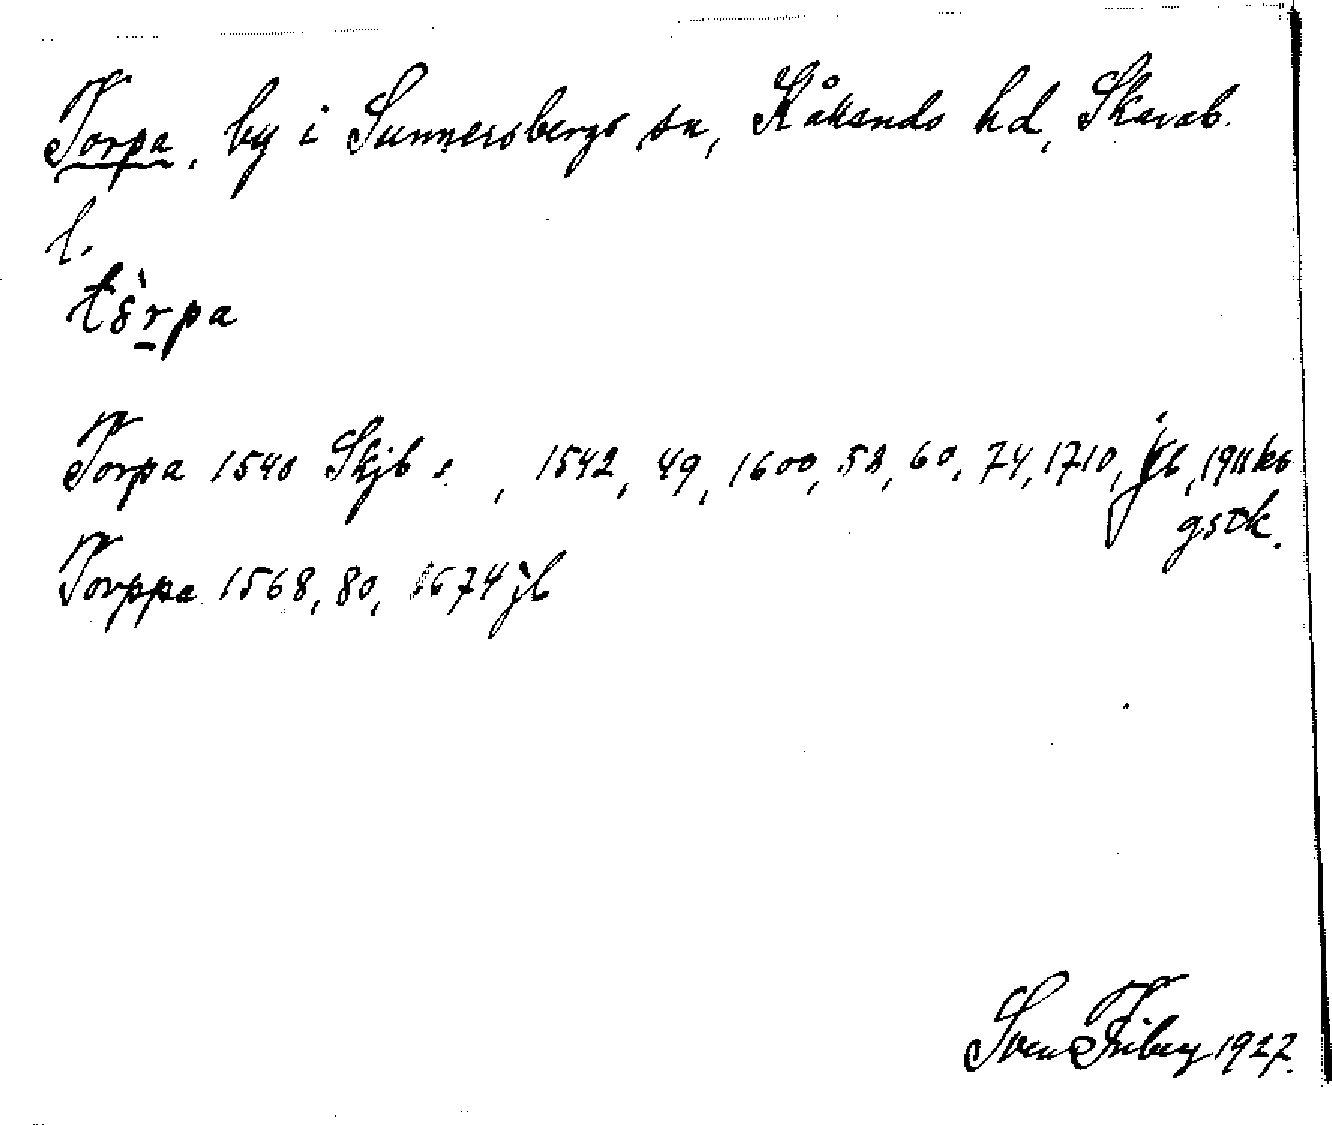 Torpa, by i Sunnersbergs sn, Kållands hd, Skarab.
l.
tö̀rpa
Torpa 1540 Skjb , 1542, 49, 1600, 58, 60, 74, 1710, jb, 1911 ks
gstk.
Torppa 1568, 80, 1674 jb
Sven Friberg 1927.